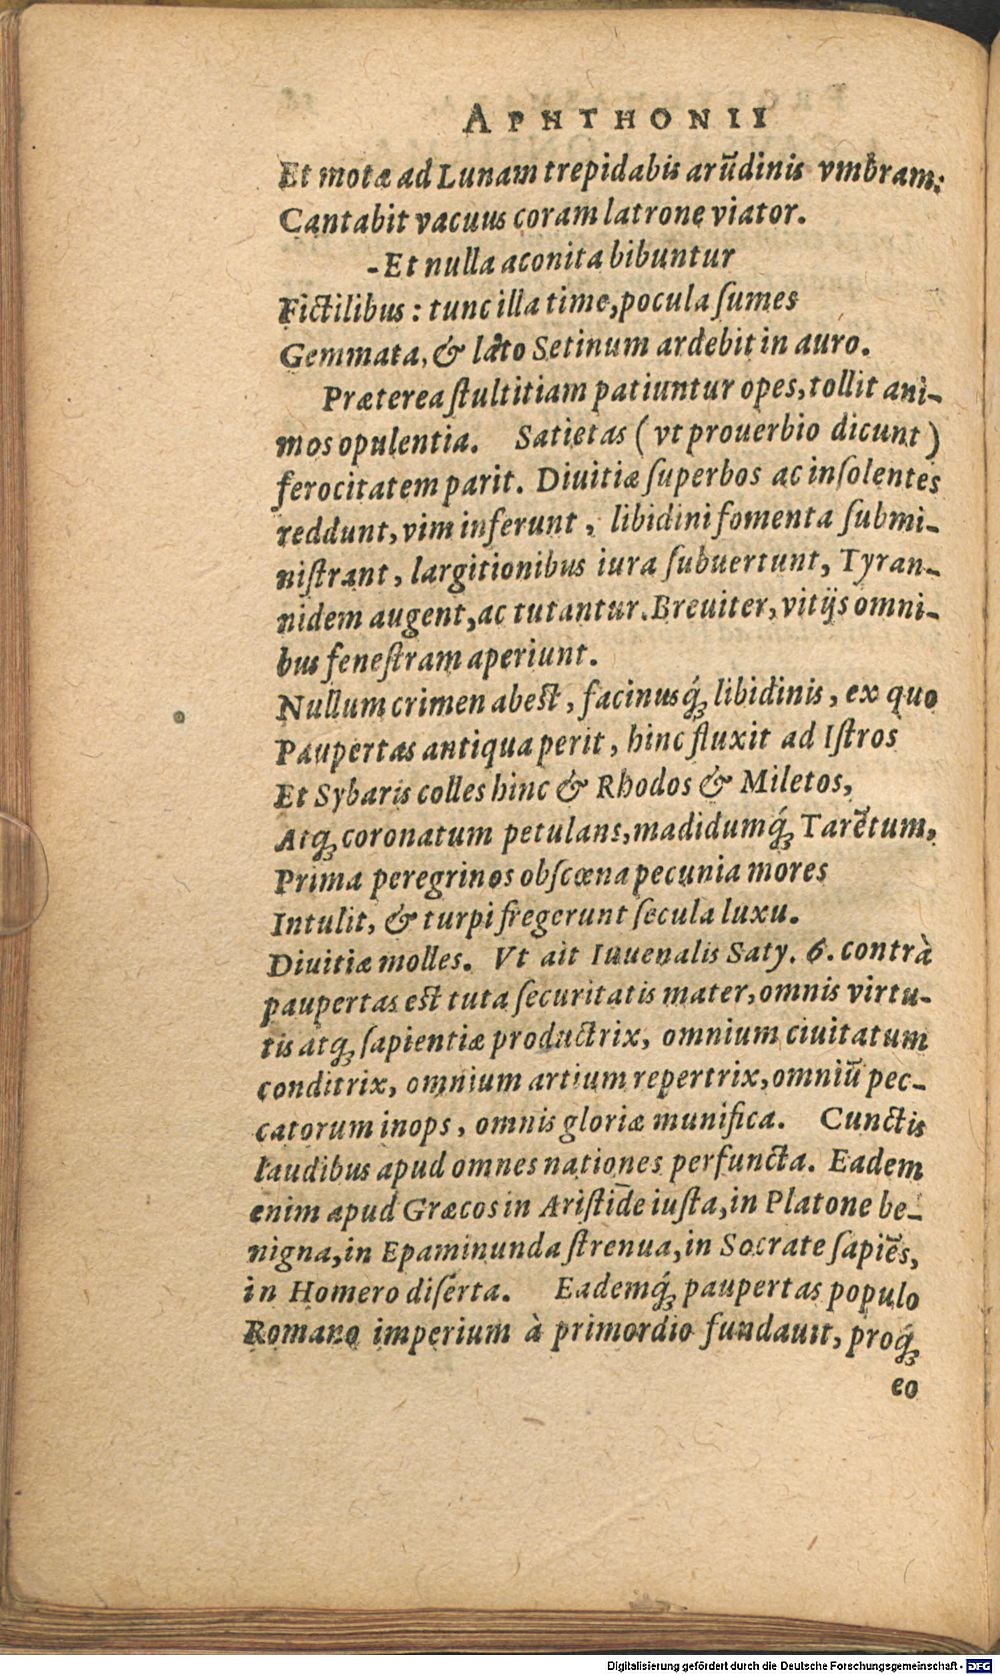 APHTHONII
Et motæ ad Lunam trepidabis arũdinis vmbram:
Cantabit vacuus coram latrone viator.
-Et nulla aconita bibuntur
Fictilibus: tunc illa time, pocula ſumes
Gemmata, & lato Setinum ardebit in auro.
Præterea ſtultitiam patiuntur opes, tollit ani-
mos opulentia. Satietas (vt prouerbio dicunt)
ferocitatem parit. Diuitiæ ſuperbos ac inſolentes
reddunt, vim inferunt, libidini fomenta ſubmi-
niſtrant, largitionibus iura ſubuertunt, Tyran-
nidem augent, ac tutantur. Breuiter, vitijs omni-
bus feneſtram aperiunt.
Nullum crimen abest, facinusq́ꝫ libidinis, ex quo
Paupertas antiqua perit, hinc fluxit ad Iſtros
Et Sybaris colles hinc & Rhodos & Miletos,
Atqꝫ coronatum petulans, madidumq́ꝫ Tarẽtum,
Prima peregrinos obſcœna pecunia mores
Intulit, & turpi fregerunt ſecula luxu.
Diuitiæ molles. Vt ait Iuuenalis Saty. 6. contrà
paupertas est tuta ſecuritatis mater, omnis virtu-
tis atqꝫ ſapientiæ productrix, omnium ciuitatum
conditrix, omnium artium repertrix, omniũ pec-
catorum inops, omnis gloriæ munifica. Cunctis
laudibus apud omnes nationes perfuncta. Eadem
enim apud Græcos in Ariſtide iuſta, in Platone be-
nigna, in Epaminunda ſtrenua, in Socrate ſapiẽs,
in Homero diſerta. Eademq́ꝫ paupertas populo
Romano imperium à primordio fundauit, proq́ꝫ
eo
Digitalisierung gefördert durch die Deutsche Forschungsgemeinschaft - DFG